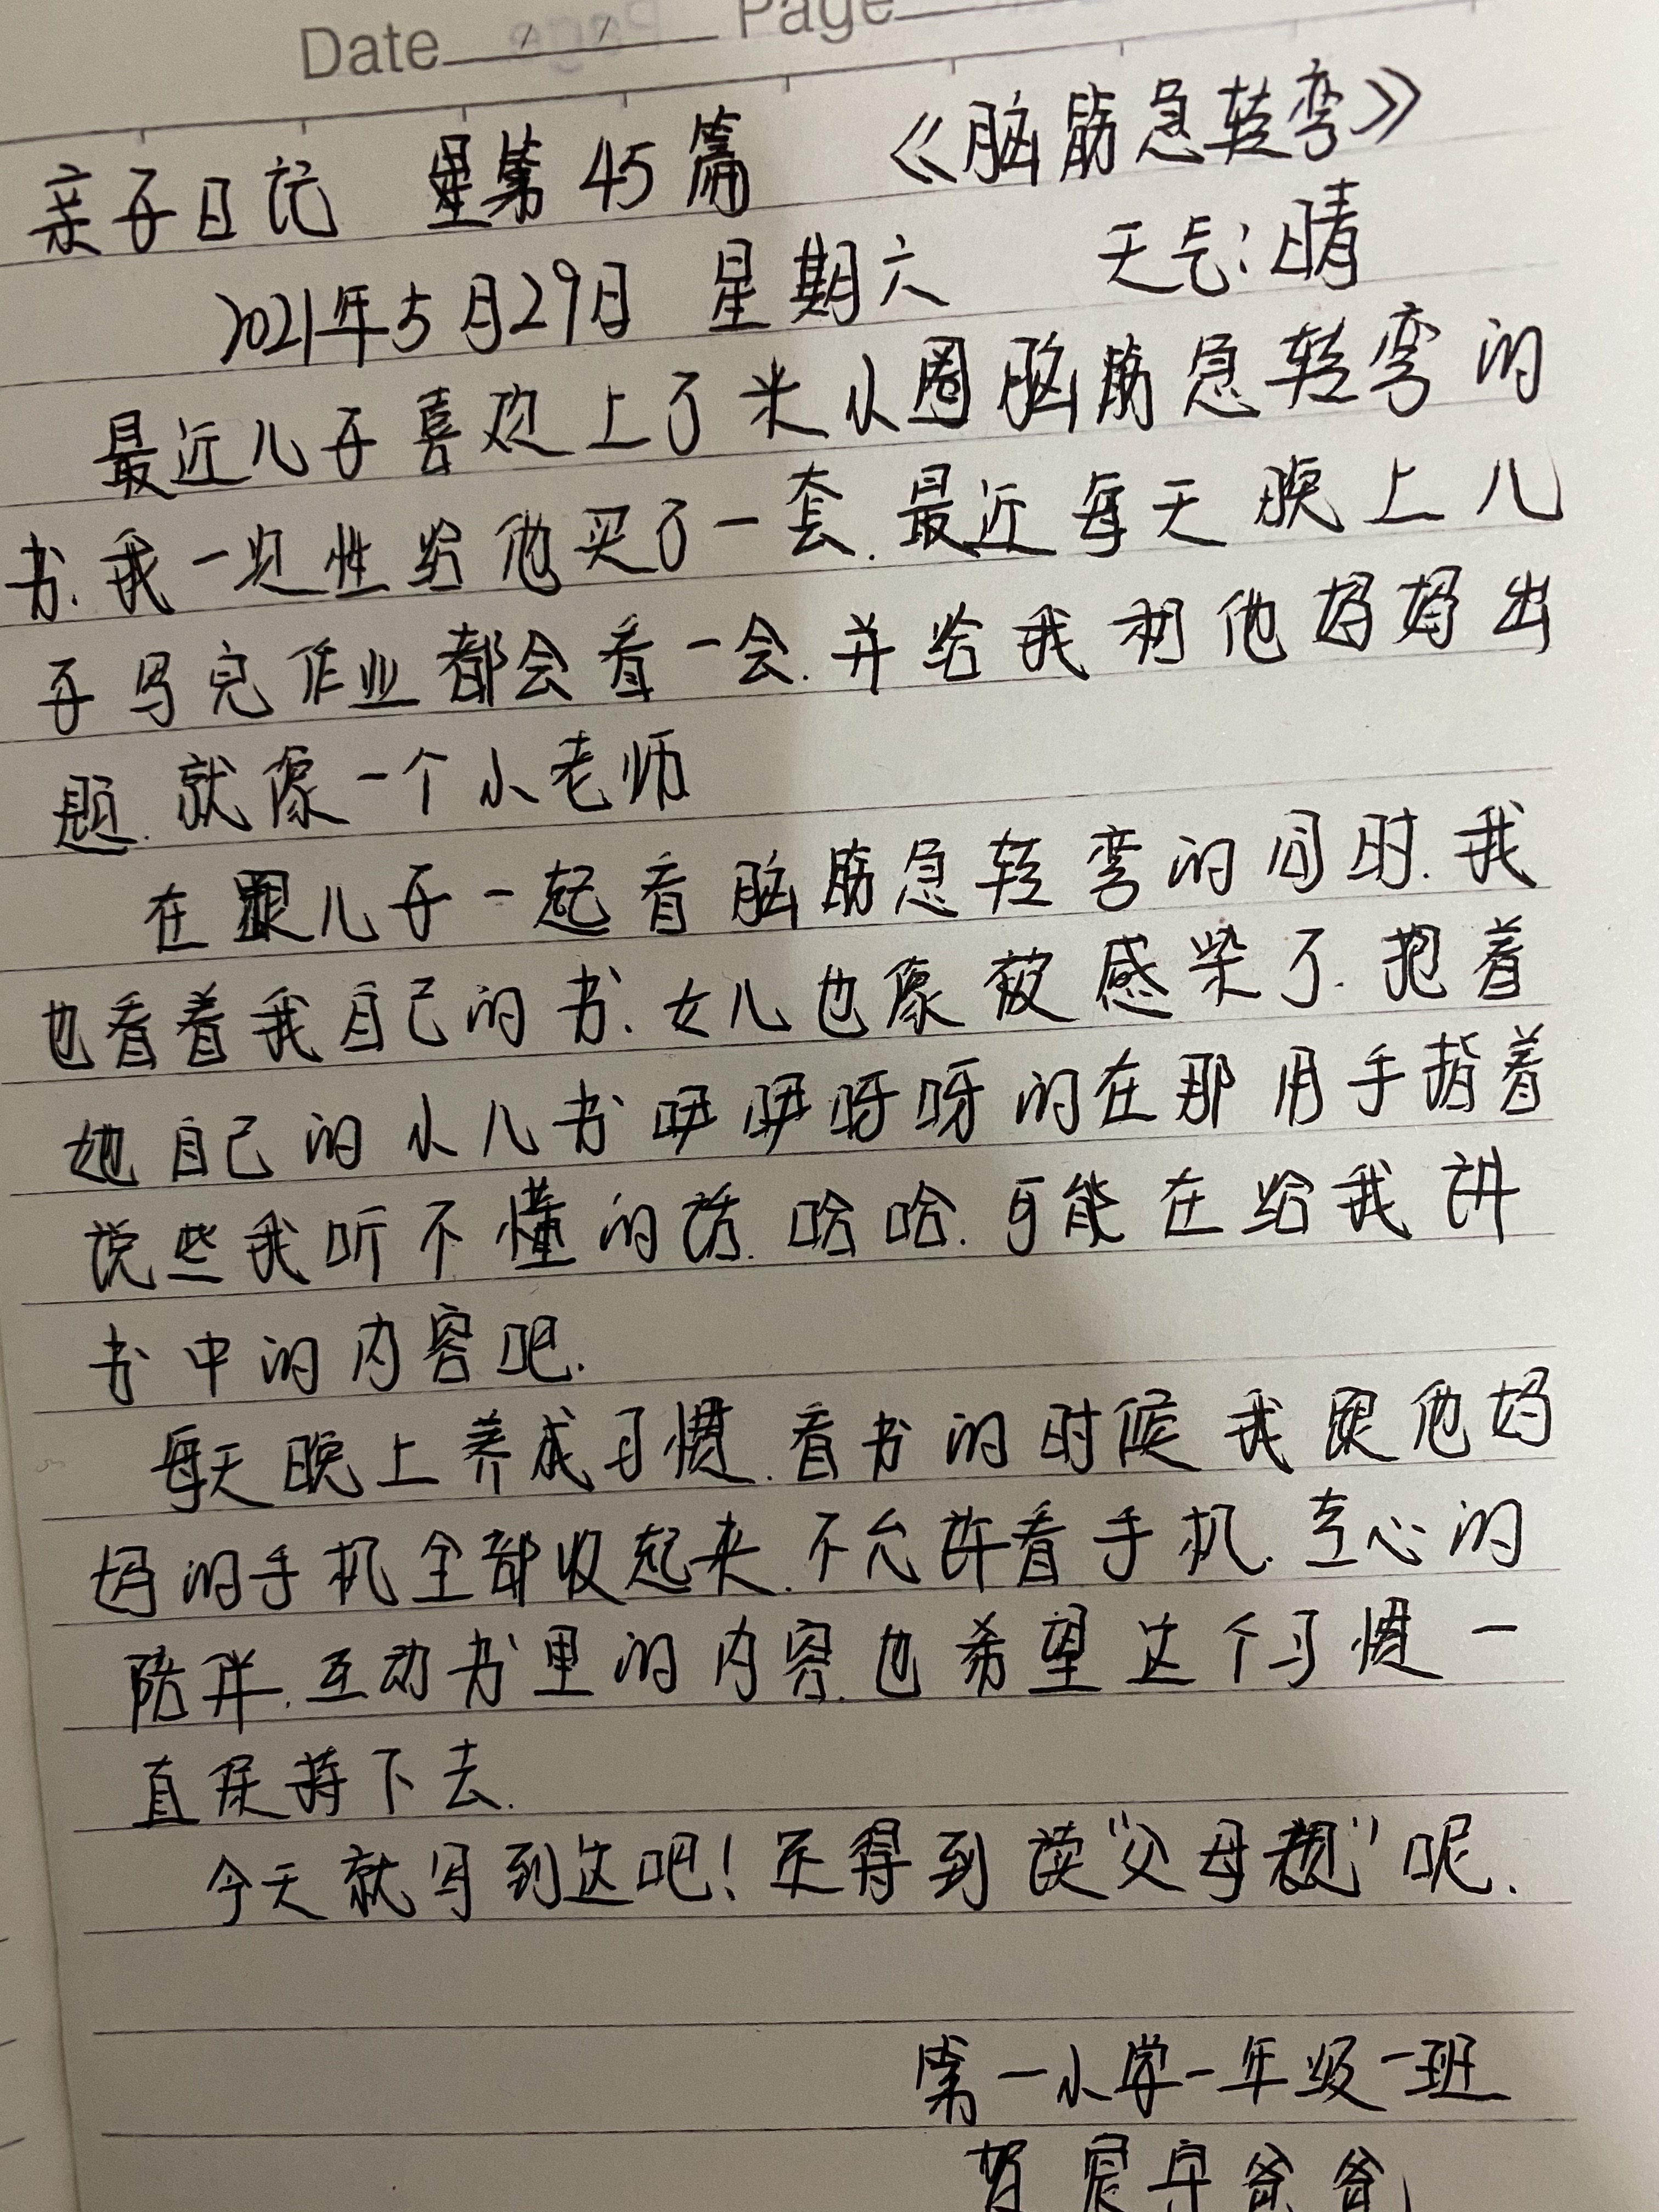 Date Page
亲子日记 第45篇 《脑筋急转弯》
2021年5月29日 星期六 天气:晴
最近儿子喜欢上了米小圈脑筋急转弯的
书.我一次性给他买了一套.最近每天晚上儿
子写完作业都会看一会.并给我和他妈妈出
题.就像一个小老师
在跟儿子一起看脑筋急转弯的同时.我
也看着我自己的书.女儿也像被感染了.抱着
她自己的小儿书咿咿呀呀的在那用手指着
说些我听不懂的话.哈哈.可能在给我讲
书中的内容吧.
每天晚上养成习惯.看书的时候我跟他妈
妈的手机全部收起来.不允许看手机.专心的
陪伴.互动书里的内容.也希望这个习惯一
直保持下去.
今天就写到这吧!还得到读“父母规”呢.
第一小学一年级一班
贺宸宇爸爸